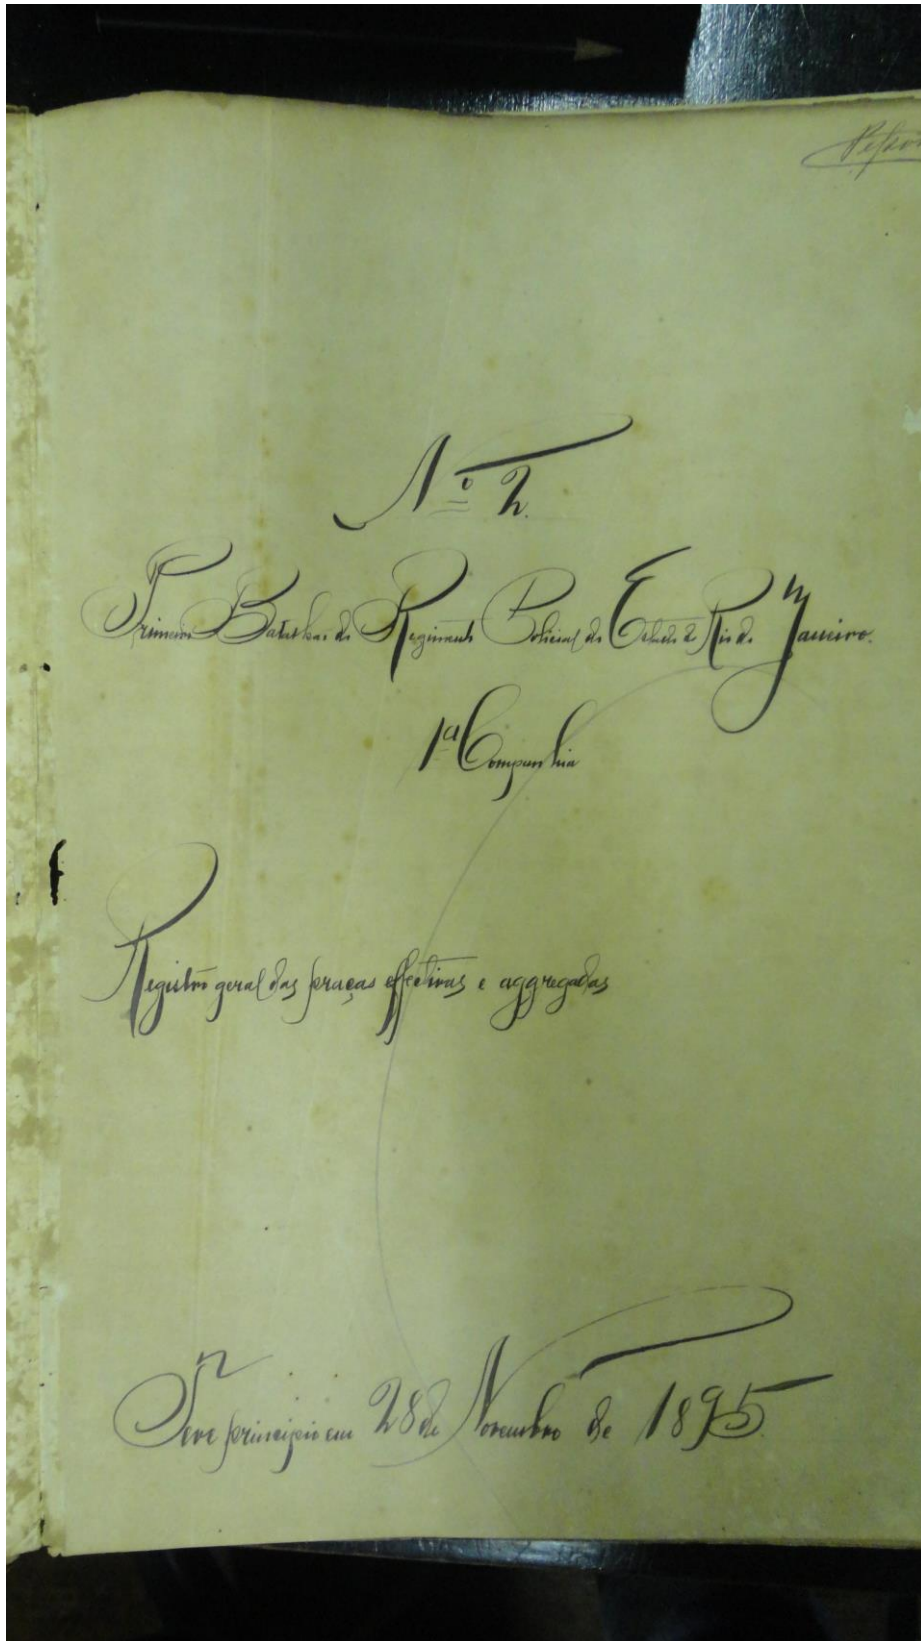 Nº 2.
Primeiro Batalhao do Regimento Policial do Estado do Rio de Janeiro.
1ª Companhia
Registro geral das praças effectivas e aggregadas
Teve principio em 28 de Novembro de 1895.